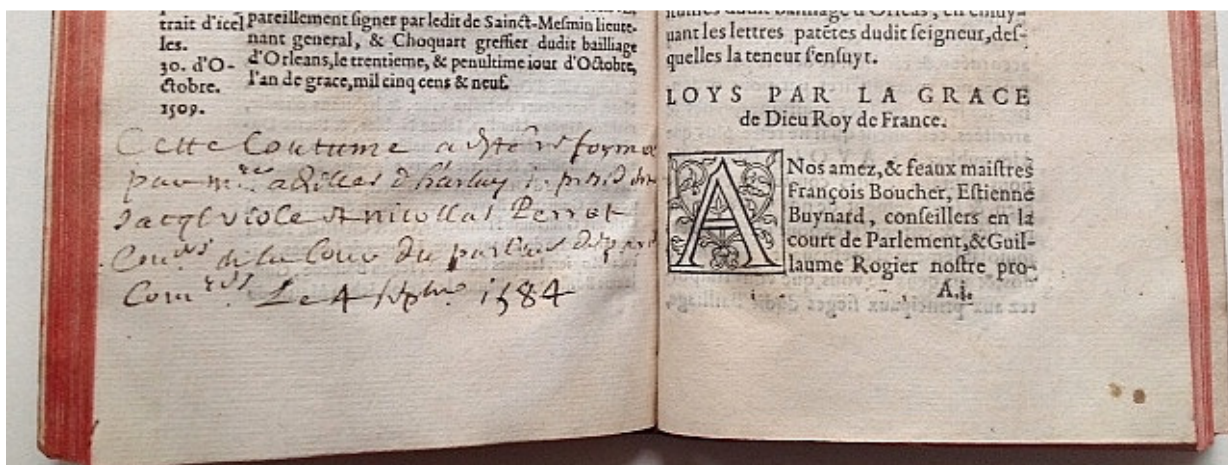 trait d'icel
les.
30. d'O-
ctobre.
1509.
pareillement signer par ledit de Sainct-Mesmin lieute-
nant general, & Choquart greffier dudit bailliage
d'Orleans, le trentieme, & penultime iour d'Octobre,
l'an de grace, mil cinq cens & neuf.
Cette Coutume a esté reformee
par m.res achilles d'harlay p. presid
Jacq. viole et nicollas Perrot
Con.ers de la Cour du parlem
Com.res Le 4 septbre 1584
uant les lettres patētes dudit seigneur, des-
quelles la teneur s'ensuyt.
LOYS PAR LA GRACE
de Dieu Roy de France.
A Nos amez, & feaux maistres
François Boucher, Estienne
Buynard, conseillers en la
court de Parlement, & Guil-
laume Rogier nostre pro-
A.i.